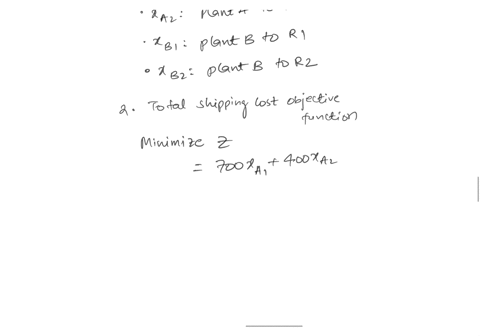 • x_A2: plant
• x_B1: plant B to R1
• x_B2: plant B to R2
2. Total shipping cost objective
function
Minimize Z
= 700x_A1 + 400x_A2